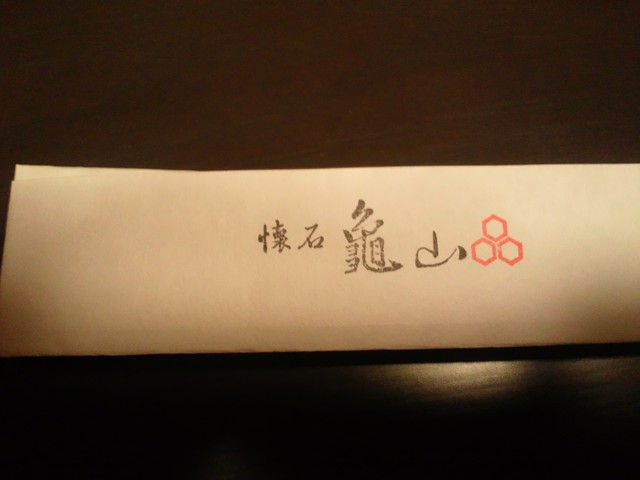 懐石 龜山